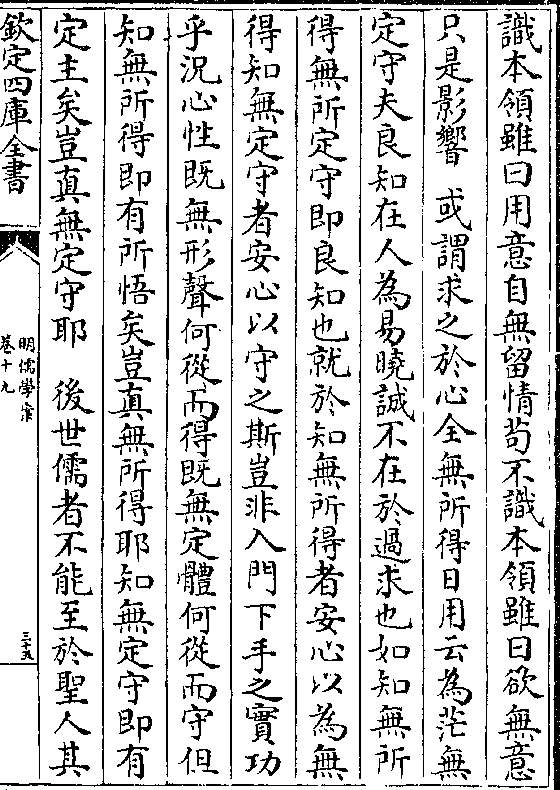 識本領雖曰用意自無留情苟不識本領雖曰欲無意
只是影響　或謂求之於心全無所得日用云為茫無
定守夫良知在人為易曉誠不在於過求也如知無所
得無所定守即良知也就於知無所得者安心以為無
得知無定守者安心以守之斯豈非入門下手之實功
乎況心性既無形聲何從而得既無定體何從而守但
知無所得即有所悟矣豈真無所得耶知無定守即有
定主矣豈真無定守耶　後世儒者不能至於聖人其
欽定四庫全書
明儒學案
卷十九
三十五